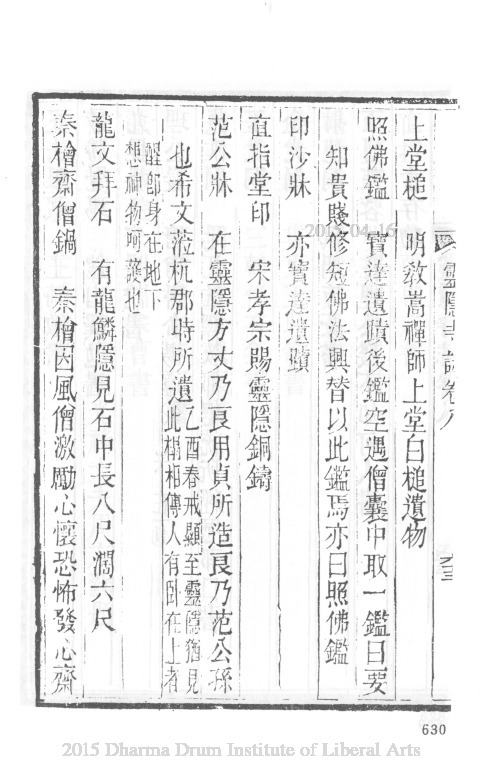 靈隱寺誌卷八 六三
上堂槌 明教嵩禪師上堂白槌遺物
照佛鑑 寶達遺蹟後鑑空遇僧囊中取一鑑曰要
知貴賤修短佛法興替以此鑑焉亦曰照佛鑑
印沙牀 亦寶達遺蹟
直指堂印 宋孝宗賜靈隱銅鑄
范公牀 在靈隱方丈乃良用貞所造良乃范公孫
也希文蒞杭郡時所遺乙酉春戒顯至靈隱猶見
此榻相傳人有卧在上者
醒卽身在地下
想神物呵護也
龍文拜石 有龍鱗隱見石中長八尺濶六尺
秦檜齋僧鍋 秦檜因風僧激勵心懷恐怖發心齋
630
2015 Dharma Drum Institute of Liberal Arts